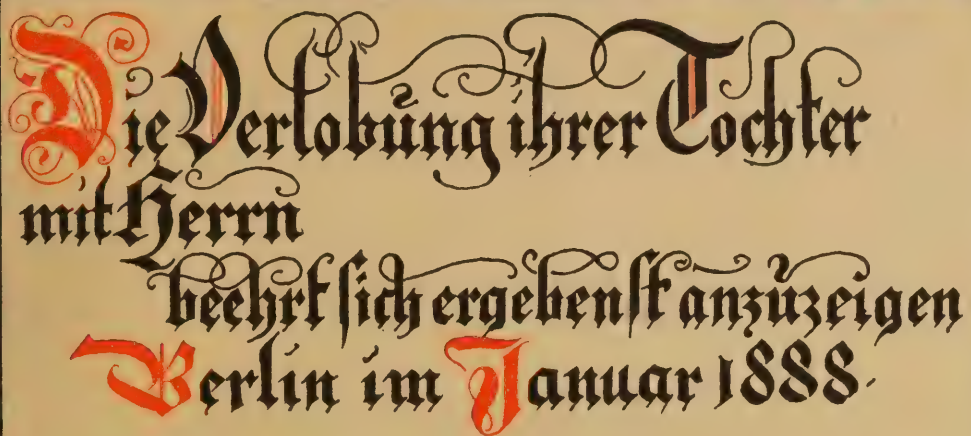 Die Verlobung ihrer Tochter
mit Herrn
beehrt sich ergebenst anzuzeigen
Berlin im Januar 1888.